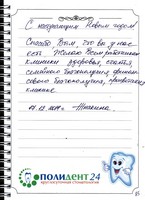 С наступающим Новым годом!
Спасибо Вам, что вы у нас
есть. Желаю Всем работникам
клиники здоровья, счастья,
семейного благополучия,
своего благополучия, процветания
клинике.
ПОЛИДЕНТ 24
круглосуточная стоматология